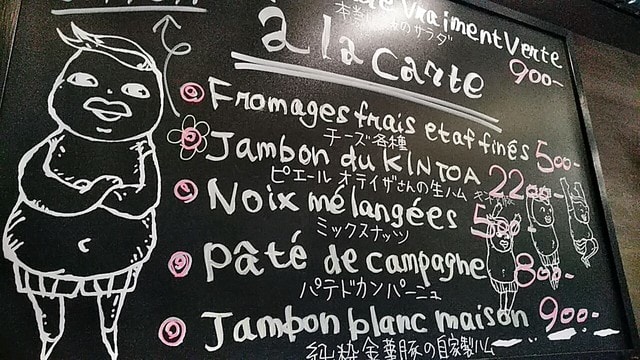 Vraiment Verte
本当に緑のサラダ 900-
à la carte
Fromages frais et affinés 500-
チーズ各種
Jambon du KINTOA 2200
ピエール オテイザさんの生ハム
Noix mélangées 500
ミックスナッツ
Pâté de campagne 800-
パテドカンパーニュ
Jambon blanc maison 900-
純粋金華豚の自家製ハム